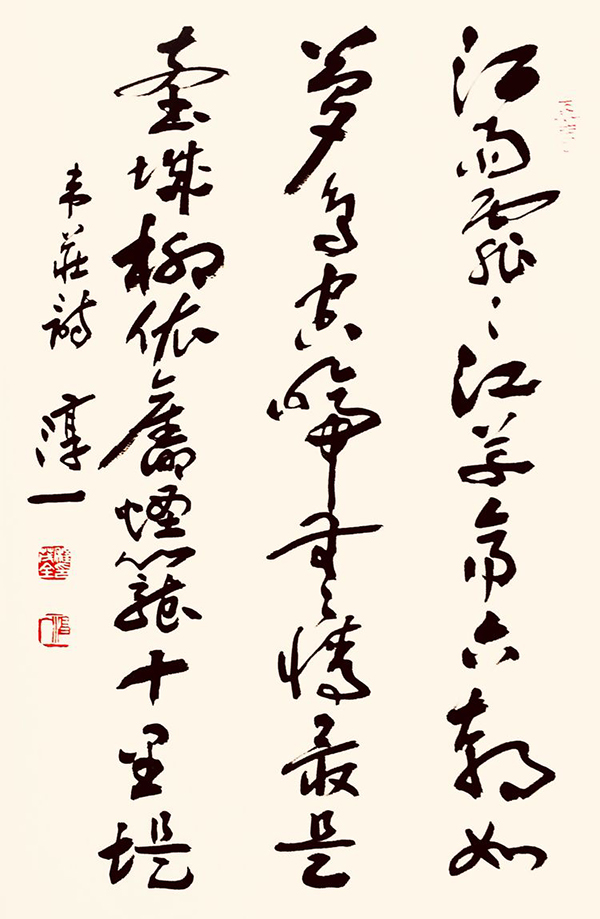 江雨霏〻江草齊六朝如
夢鳥空啼無情最是
臺城柳依舊煙籠十里堤
韋莊詩 淳一